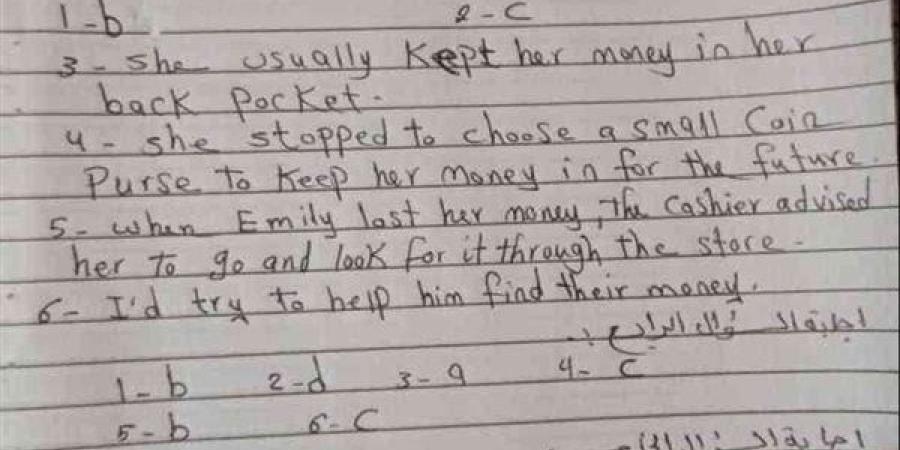 1-b 2-C
3- she usually kept her money in her
back pocket.
4- she stopped to choose a small Coin
Purse to keep her money in for the future.
5- when Emily lost her money, the cashier advised
her to go and look for it through the store.
6- I'd try to help him find their money.
1-b 2-d 3-a 4-C
5-b 6-C